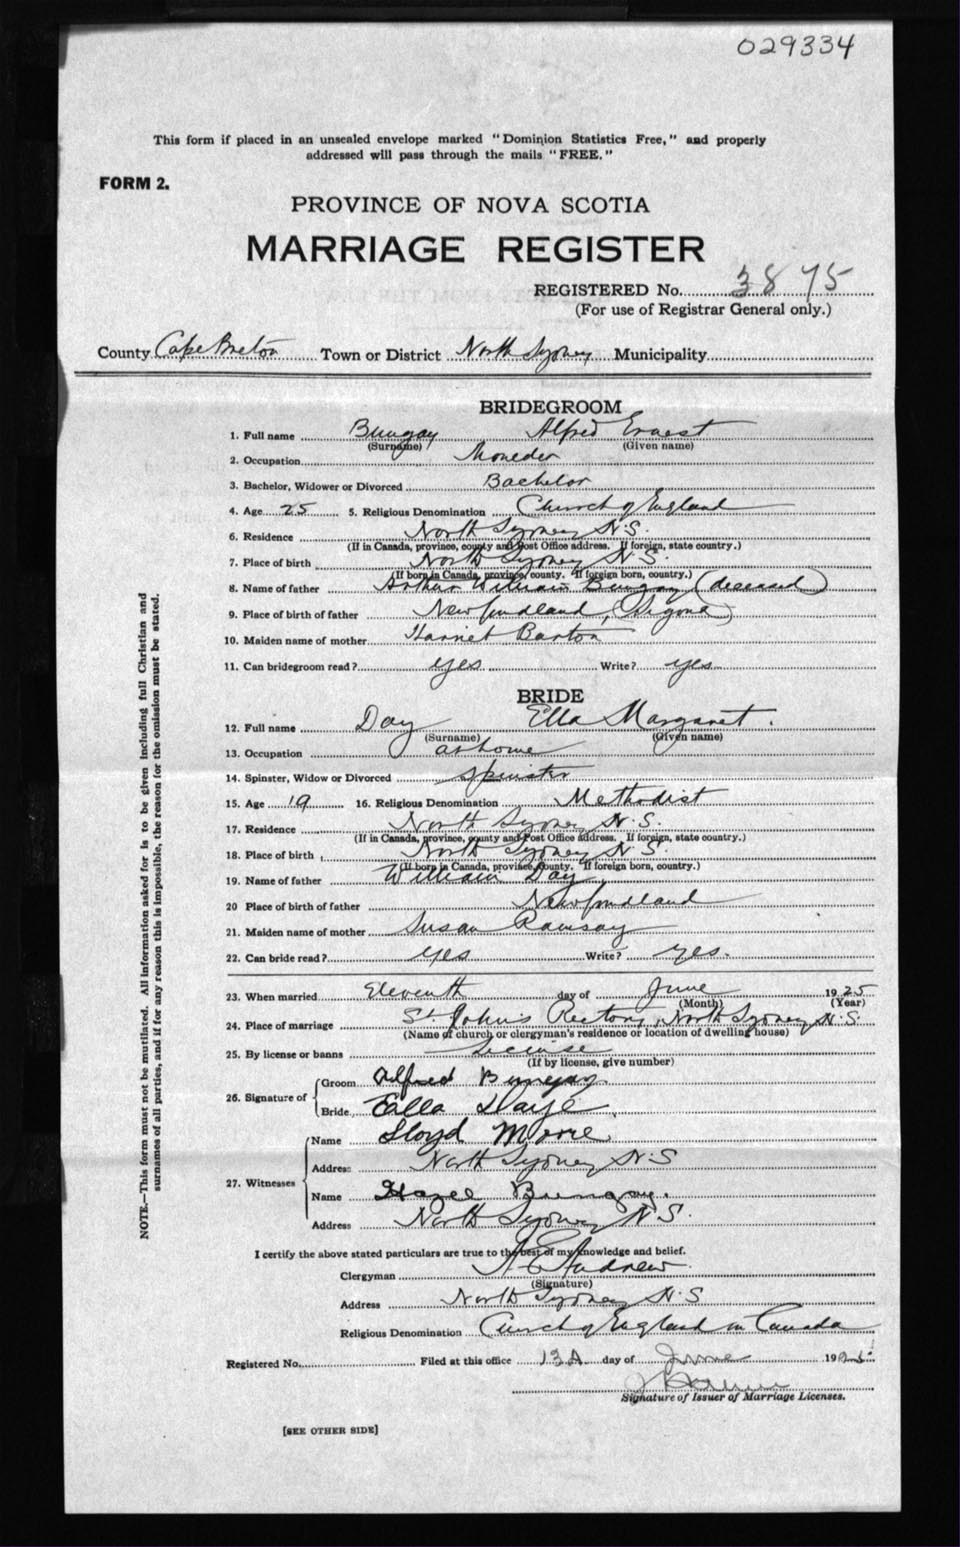 029334
This form if placed in an unsealed envelope marked "Dominion Statistics Free," and properly
addressed will pass through the mails "FREE."
FORM 2.
PROVINCE OF NOVA SCOTIA
MARRIAGE REGISTER
REGISTERED No. 3875
(For use of Registrar General only.)
County Cape Breton Town or District North Sydney Municipality
BRIDEGROOM
1. Full name Bungay Alfred Ernest
(Surname) (Given name)
2. Occupation Moneder
3. Bachelor, Widower or Divorced Bachelor
4. Age 25 5. Religious Denomination Church of England
6. Residence North Sydney N.S.
(If in Canada, province, county and Post Office address. If foreign, state country.)
7. Place of birth North Sydney N.S.
(If born in Canada, province, county. If foreign born, country.)
8. Name of father Arthur William Bungay (deceased)
9. Place of birth of father Newfoundland,
10. Maiden name of mother Harriet Barton
11. Can bridegroom read? yes Write? yes
BRIDE
12. Full name Day Ella Margaret.
(Surname) (Given name)
13. Occupation at home
14. Spinster, Widow or Divorced Spinster
15. Age 19 16. Religious Denomination Methodist
17. Residence North Sydney N.S.
(If in Canada, province, county and Post Office address. If foreign, state country.)
18. Place of birth North Sydney N.S.
(If born in Canada, province, county. If foreign born, country.)
19. Name of father William Day
20 Place of birth of father Newfoundland
21. Maiden name of mother Susan Ramsay
22. Can bride read? yes Write? yes.
23. When married Eleventh day of June 1925
(Month) (Year)
24. Place of marriage St John's Rectory, North Sydney N.S.
(Name of church or clergyman's residence or location of dwelling house)
25. By license or banns License
(If by license, give number)
26. Signature of
Groom Alfred Bungay
Bride Ella Daye
27. Witnesses
Name Lloyd
Address North Sydney N.S
Name Hazel Bungay.
Address North Sydney N.S.
I certify the above stated particulars are true to the best of my knowledge and belief.
Clergyman A E Andrew
(Signature)
Address North Sydney N.S
Religious Denomination Church of England in Canada
Registered No. Filed at this office 13 day of June 1925
Signature of Issuer of Marriage Licenses.
[SEE OTHER SIDE]
NOTE.—This form must not be mutilated. All information asked for is to be given including full Christian and
surnames of all parties, and if for any reason this is impossible, the reason for the omission must be stated.